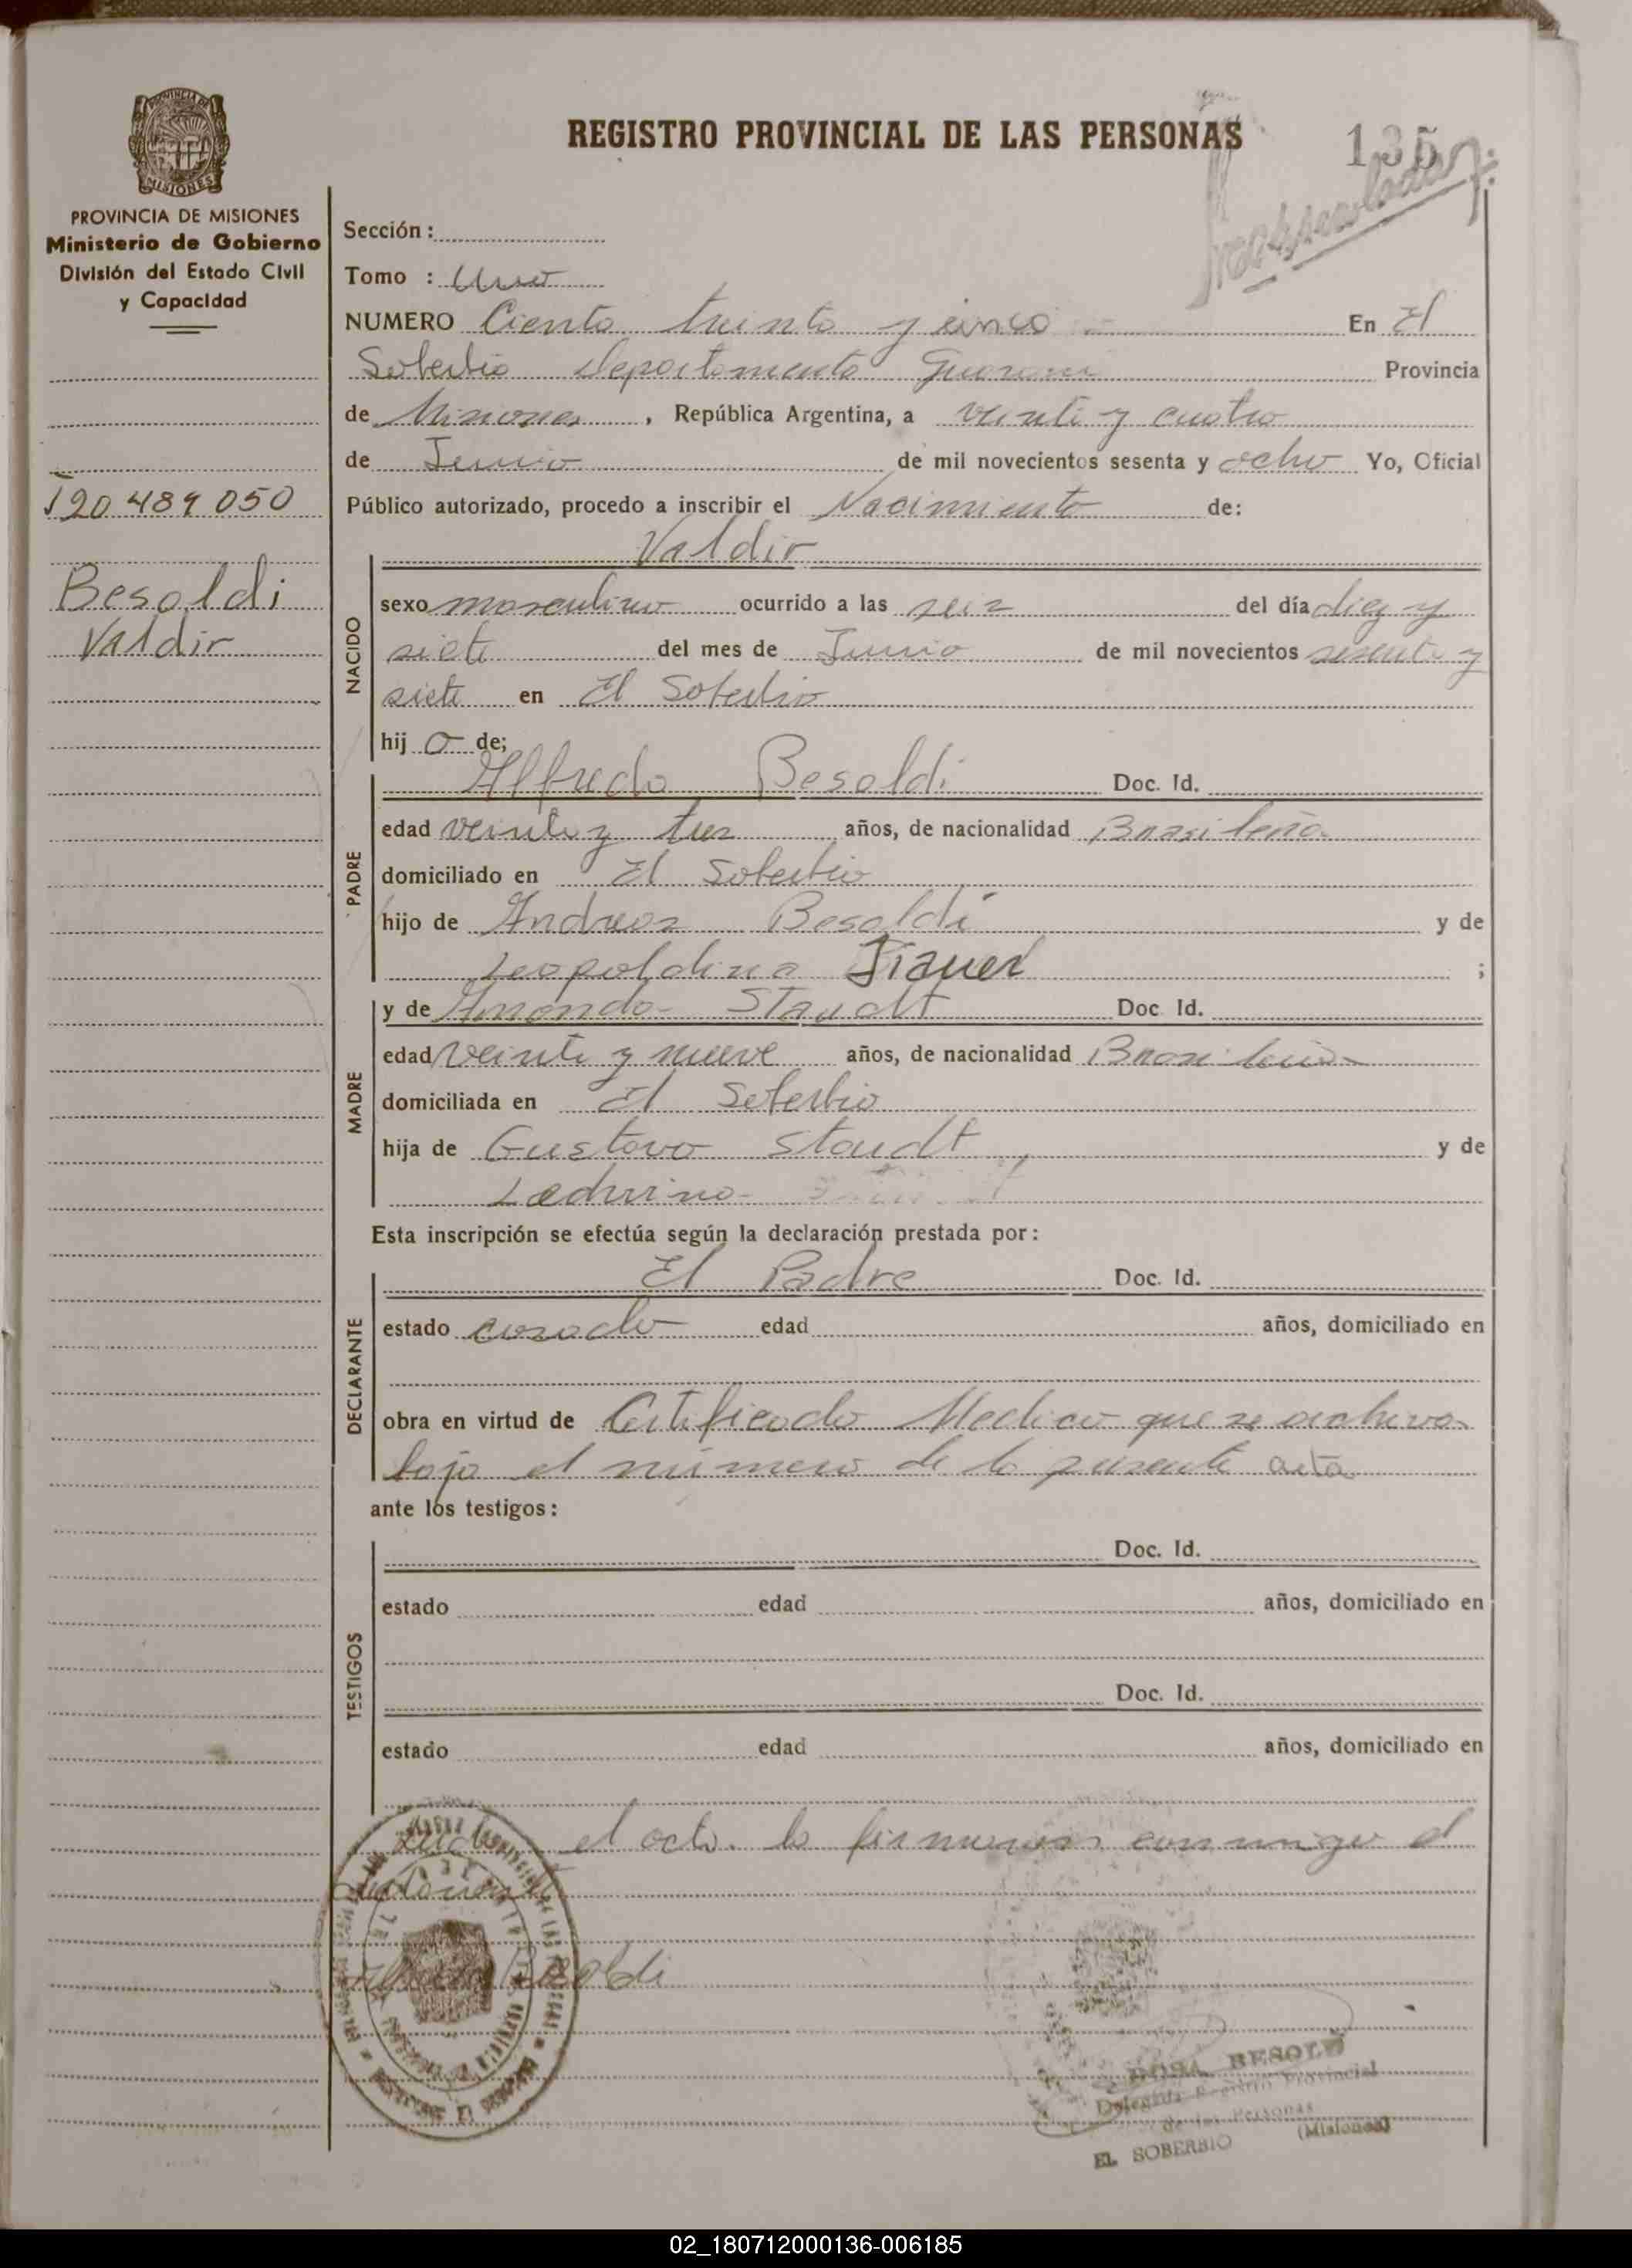 REGISTRO PROVINCIAL DE LAS PERSONAS
135
MISIONES
PROVINCIA DE MISIONES
Ministerio de Gobierno
División del Estado Civil
y Capacidad
120.489.050
Besoldi
Valdir
Sección :
Tomo : Uno
NUMERO Ciento treinta y cinco = En El
Soberbio Departamento Guarani Provincia
de Misiones, República Argentina, a veinte y cuatro
de Junio de mil novecientos sesenta y ocho Yo, Oficial
Público autorizado, procedo a inscribir el Nacimiento de:
Valdir
NACIDO
sexo masculino ocurrido a las seis del día diez y
siete del mes de Junio de mil novecientos sesenta y
siete en El Soberbio
hij o de;
Alfredo Besoldi Doc. Id.
PADRE
edad veinte y tres años, de nacionalidad Brasileña
domiciliado en El Soberbio
hijo de Andreas Besoldi y de
Leopoldina ;
y de Amanda Staudt Doc. Id.
MADRE
edad veinte y nueve años, de nacionalidad Brasileña
domiciliada en El Soberbio
hija de Gustavo Staudt y de
Esta inscripción se efectúa según la declaración prestada por:
El Padre Doc. Id.
DECLARANTE
estado casado edad años, domiciliado en
obra en virtud de Certificado Medico que se archiva
bajo el número de la presente acta
ante los testigos:
Doc. Id.
TESTIGOS
estado edad años, domiciliado en
Doc. Id.
estado edad años, domiciliado en
el acta la firman conmigo el
Besoldi
ROSA BESOLD
Delegada Registro Provincial
de las Personas
EL SOBERBIO (Misiones)
02_180712000136-006185